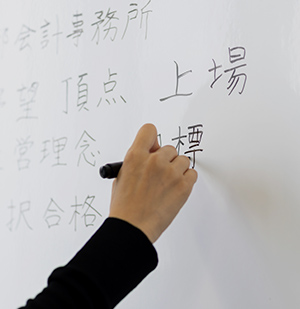 会計事務所
望 頂点 上場
営理念 標
択合格